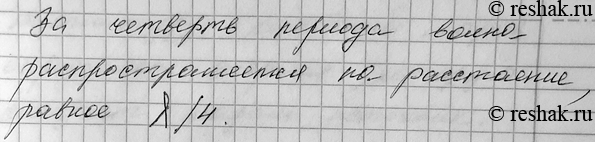 © reshak.ru
За четверть периода волна
распространяется на расстояние,
равное λ/4.
© reshak.ru